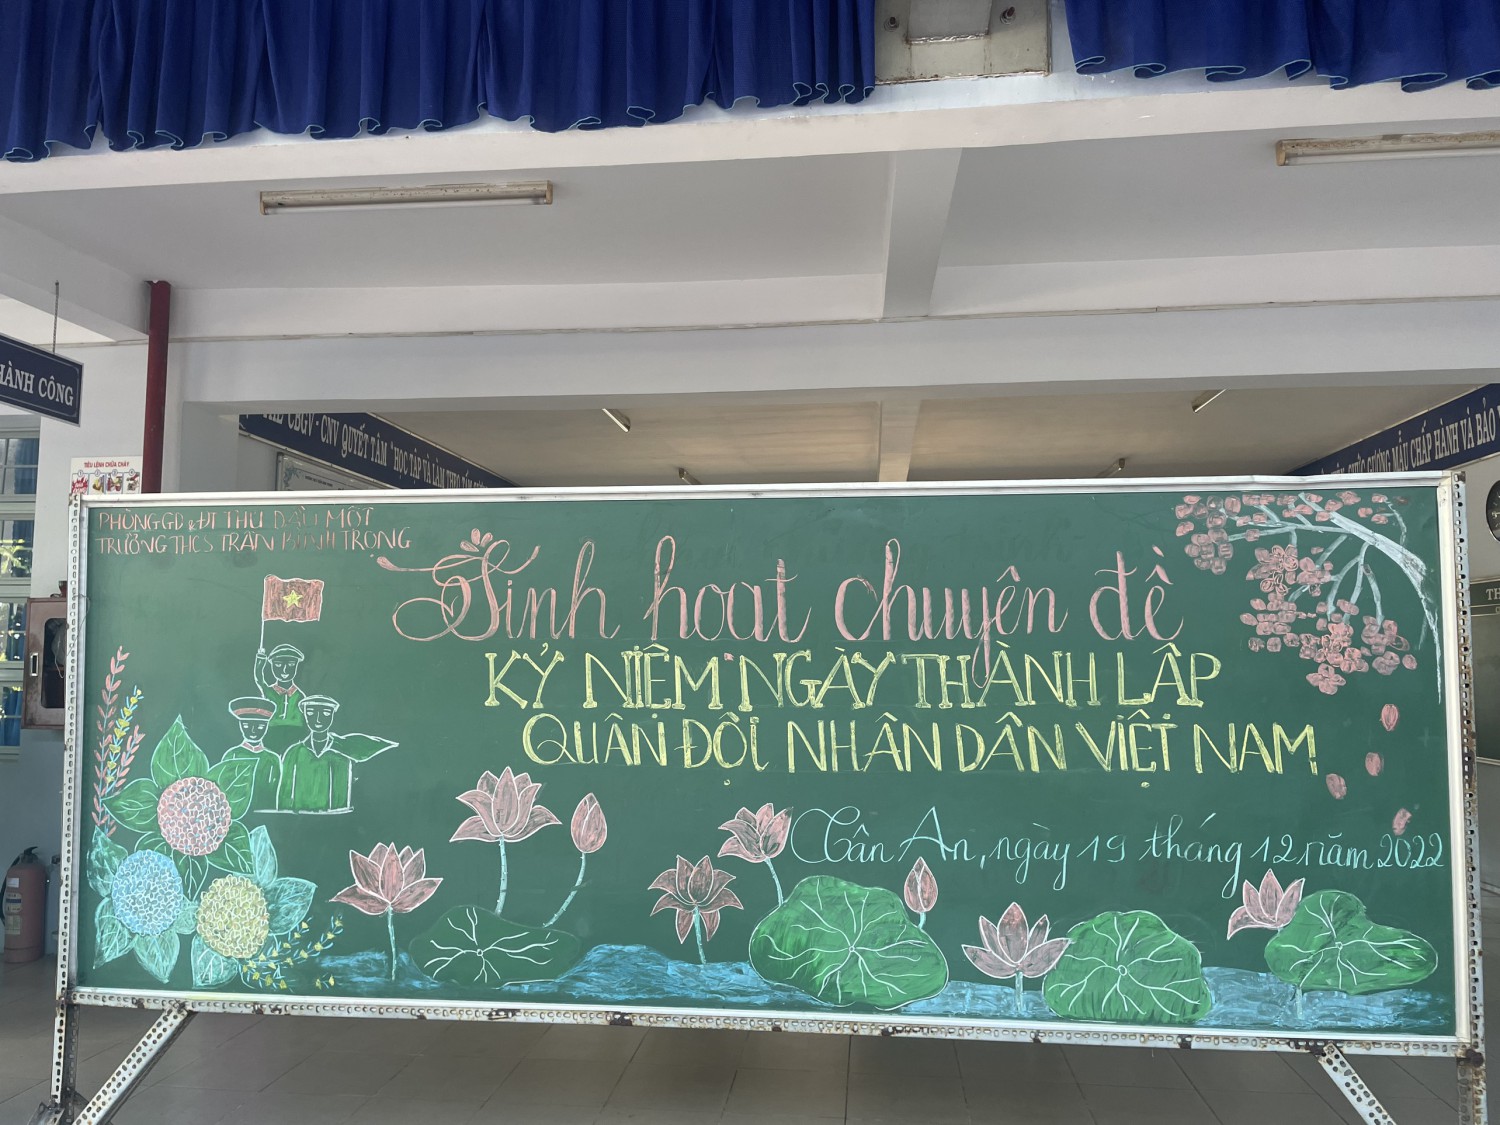 HÀNH CÔNG
CBGV - CNV QUYẾT TÂM "HỌC TẬP VÀ LÀM THEO TẤM GƯƠNG
GƯƠNG MẪU CHẤP HÀNH VÀ BẢO
TIÊU LỆNH CHỮA CHÁY
PHÒNG GD & ĐT THỦ DẦU MỘT
TRƯỜNG THCS TRẦN BÌNH TRỌNG
Sinh hoạt chuyên đề
KỶ NIỆM NGÀY THÀNH LẬP
QUÂN ĐỘI NHÂN DÂN VIỆT NAM
Tân An, ngày 19 tháng 12 năm 2022